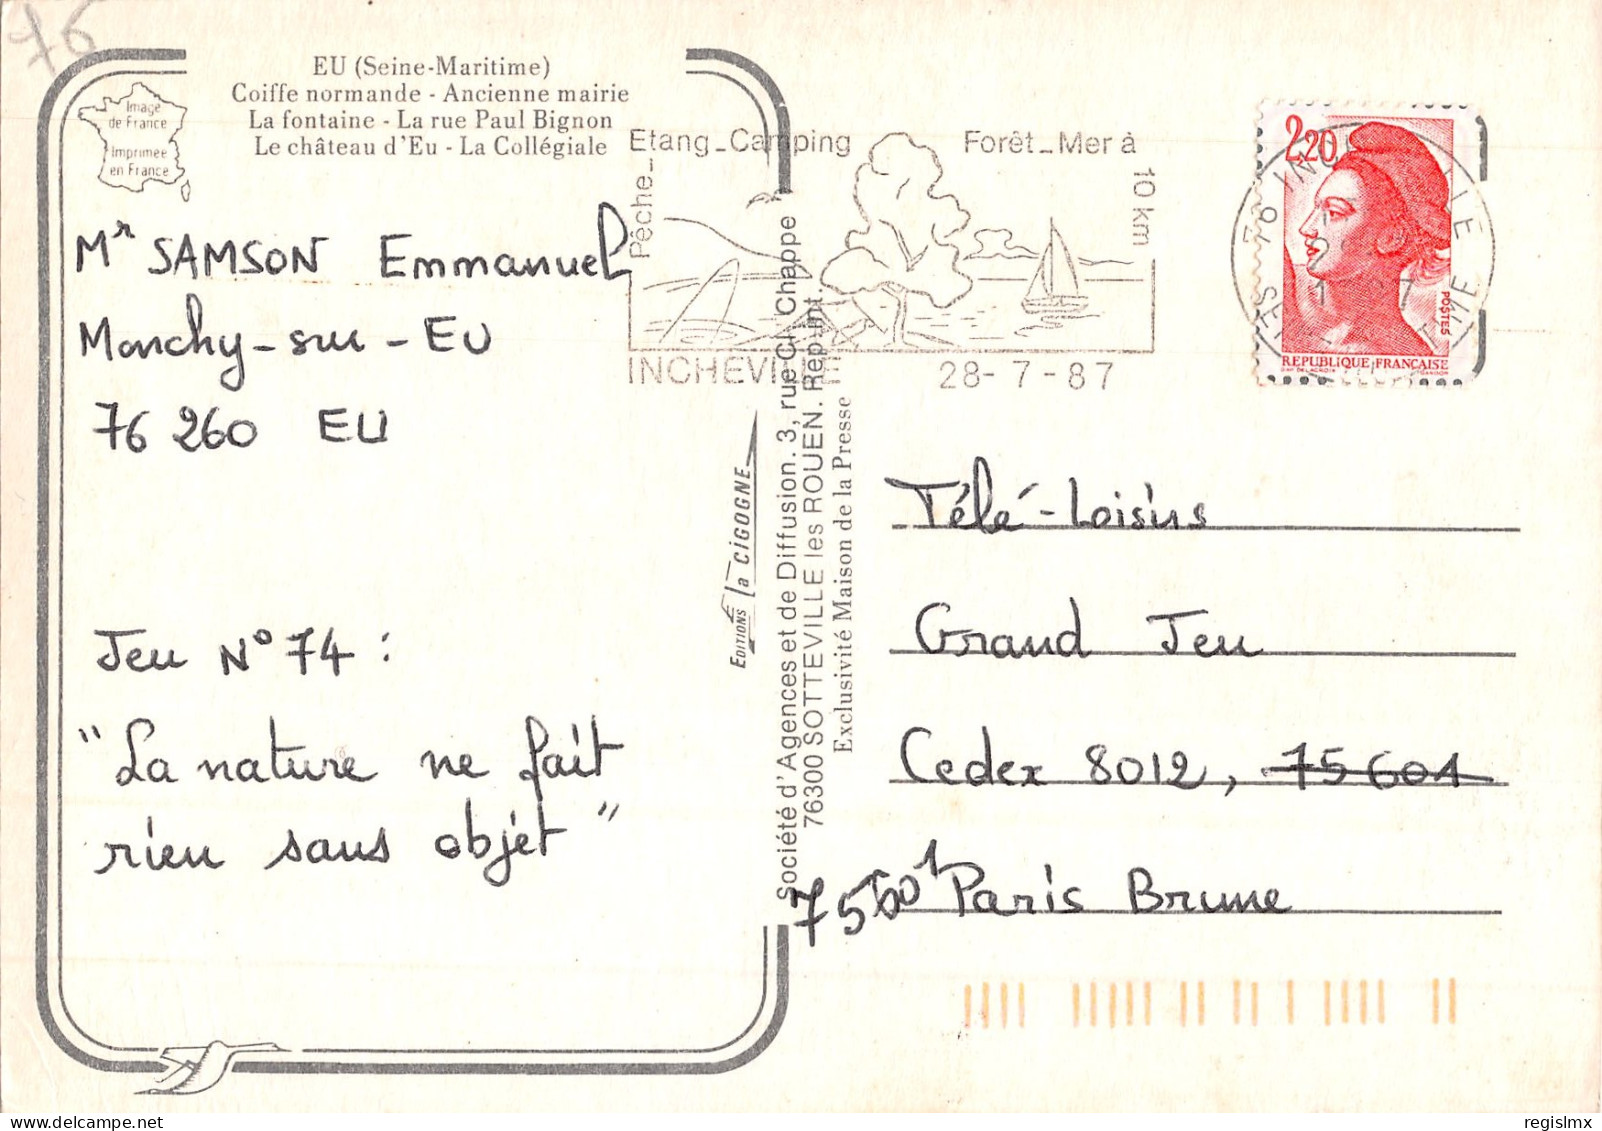 76
EU (Seine-Maritime)
Coiffe normande - Ancienne mairie
La fontaine - La rue Paul Bignon
Le château d'Eu - La Collégiale
Image
de France
Imprimée
en France
Mr SAMSON Emmanuel
Monchy-sur-EU
76 260 EU
Jeu N° 74 :
"La nature ne fait
rien sans objet"
Pêche_
Etang_Camping
Forêt_Mer à
10 km
INCHEVILLE
28-7-87
2,20
POSTES
REPUBLIQUE FRANÇAISE
Editions la CIGOGNE
Société d'Agences et de Diffusion. 3, rue Cl Chappe
76300 SOTTEVILLE les ROUEN. Rep Int
Exclusivité Maison de la Presse
Télé-Loisirs
Grand Jeu
Cedex 8012, 75601
75601 Paris Brune
regislmx